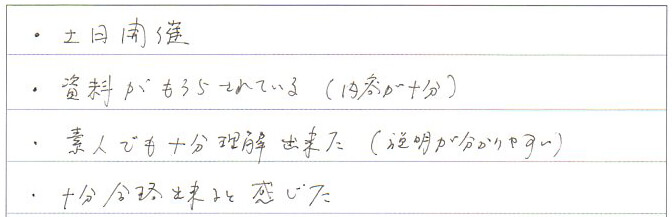 ・土日開催
・資料がもうらされている（内容が十分）
・素人でも十分理解出来た（説明が分かりやすい）
・十分合格出来ると感じた